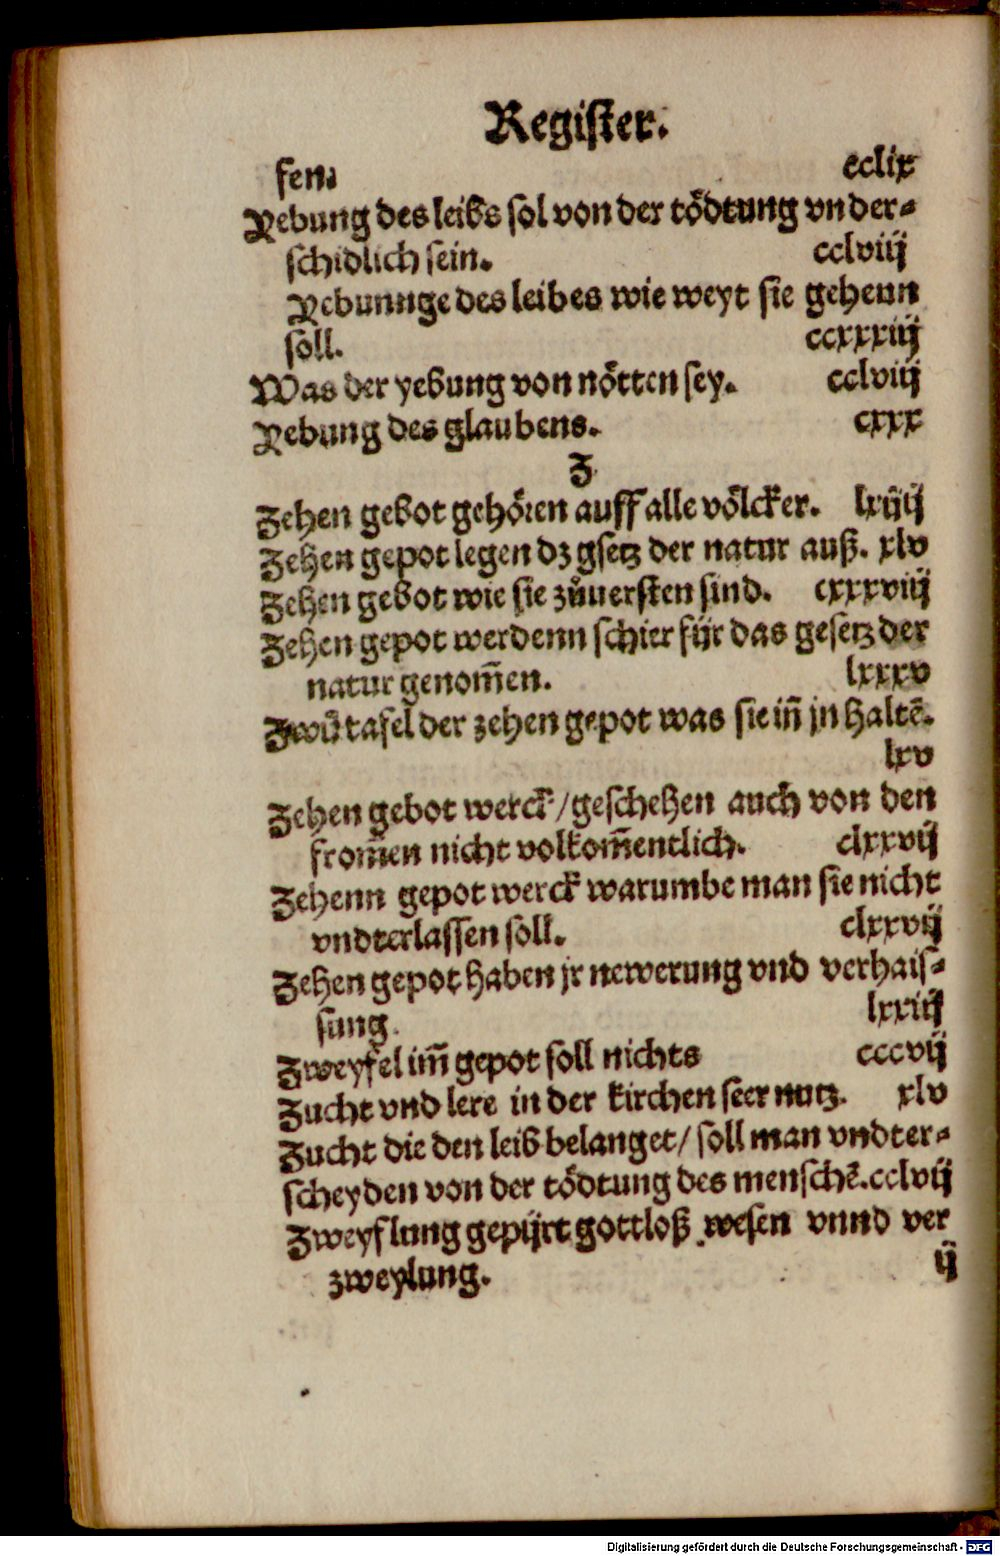 Register.
sen. cclix
Yebung des leibs sol von der tödtung vnder-
schidlich sein. cclviij
Yebunnge des leibes wie weyt sie gehenn
soll. ccxxxiij
Was der yebung von nötten sey. cclviij
Yebung des glaubens. cxxx
Z
Zehen gebot gehören auff alle völcker. lxiiij
Zehen gepot legen dz gsetz der natur auß. xlv
Zehen gebot wie sie zůuersten sind. cxxxviij
Zehen gepot werdenn schier für das gesetz der
natur genom̄en. lxxxv
Zwů tafel der zehen gepot was sie in̄ jn haltē.
lxv
Zehen gebot werck/geschehen auch von den
from̄en nicht volkom̄entlich. clxxvij
Zehenn gepot werck warumbe man sie nicht
vndterlassen soll. clxxvij
Zehen gepot haben jr newerung vnd verhais-
sung. lxxiij
Zweyfel im̄ gepot soll nichts cccvij
Zucht vnd lere in der kirchen seer nutz. xlv
Zucht die den leib belanget/ soll man vndter-
scheyden von der tödtung des menschē. cclvij
Zweyflung gepijrt gottloß wesen vnnd ver
zweylung. ij
Digitalisierung gefördert durch die Deutsche Forschungsgemeinschaft - DFG